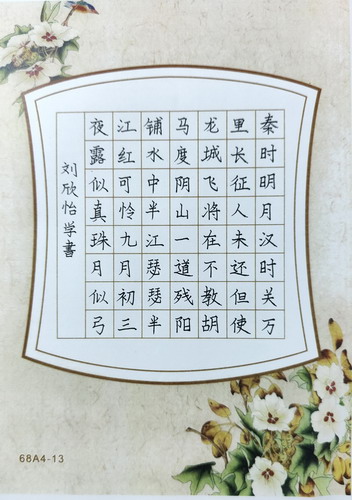 秦时明月汉时关万
里长征人未还但使
龙城飞将在不教胡
马度阴山一道残阳
铺水中半江瑟瑟半
江红可怜九月初三
夜露似真珠月似弓
刘欣怡学書
68A4-13